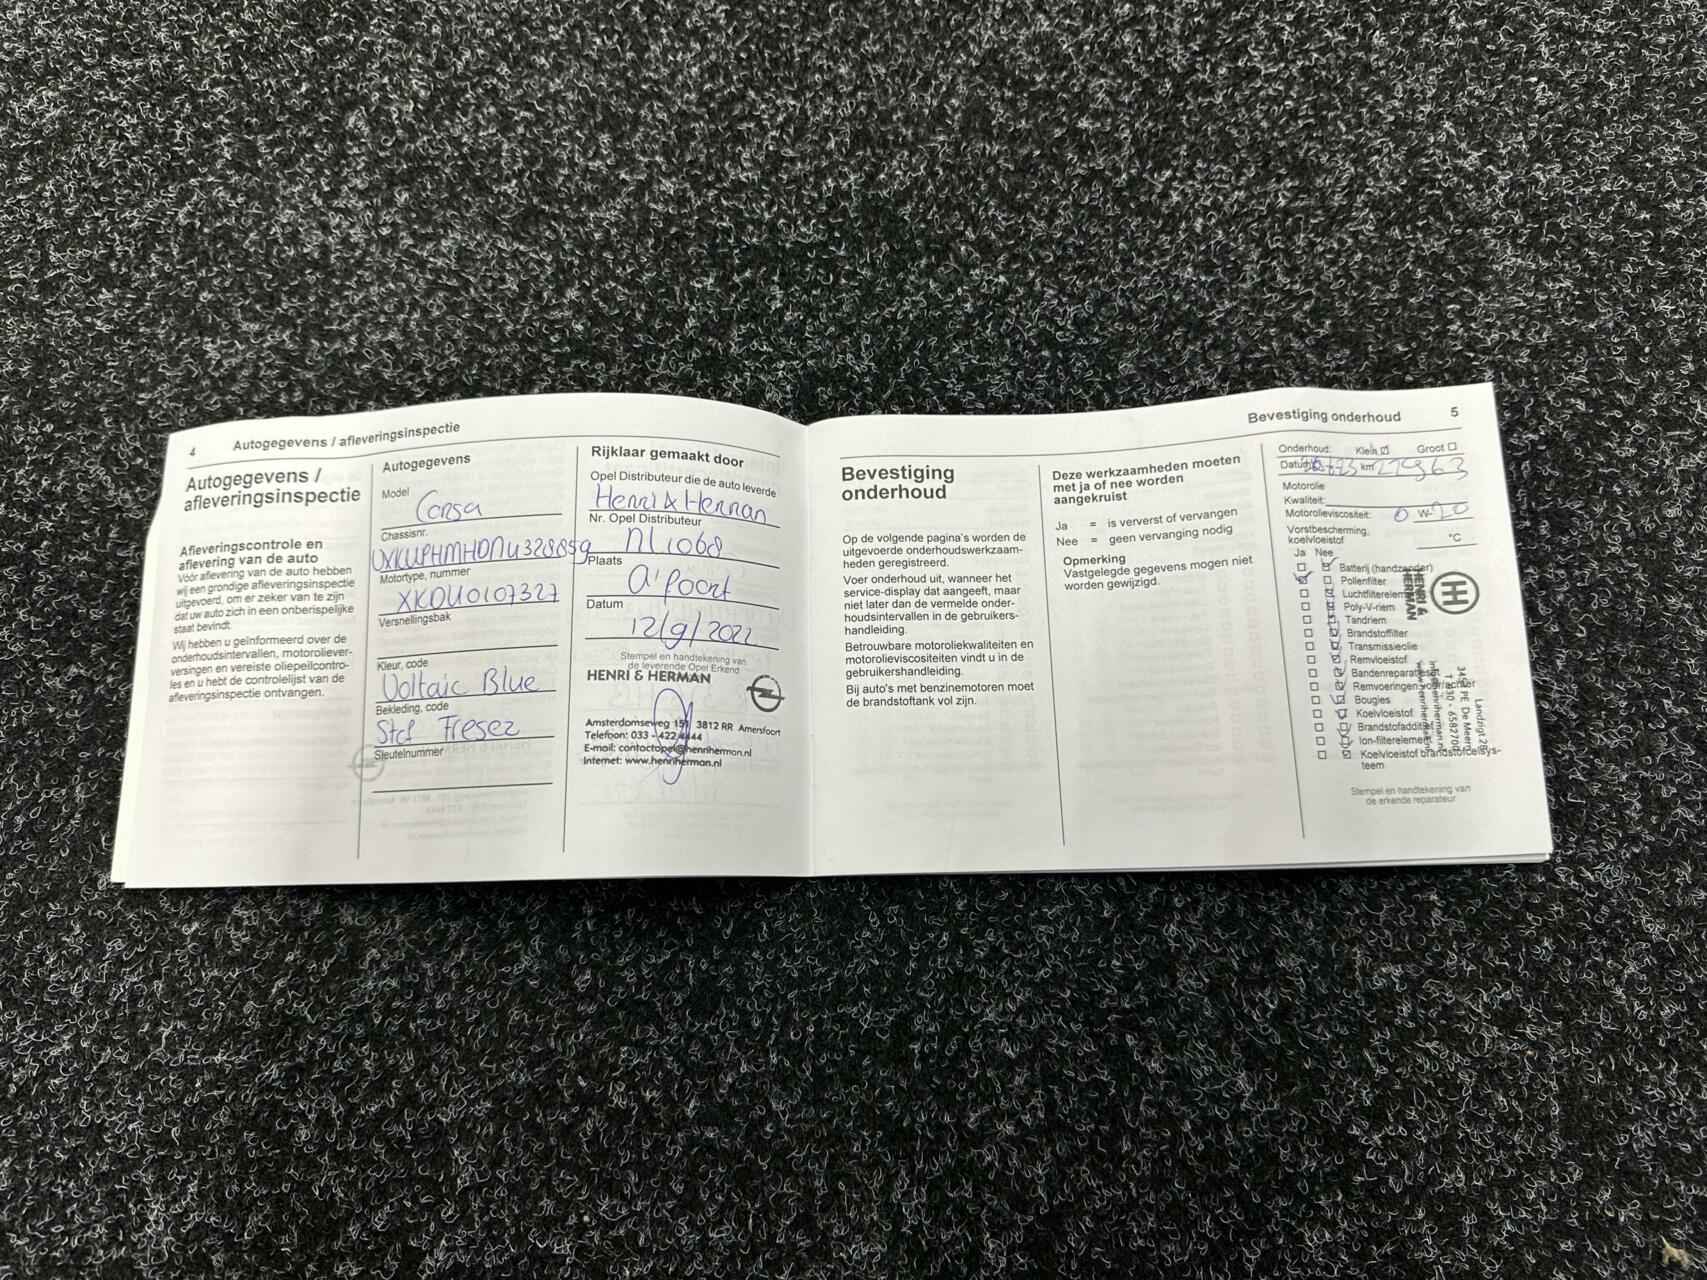 4 Autogegevens / afleveringsinspectie
Autogegevens /
afleveringsinspectie
Aflevering­scontrole en
aflevering van de auto
Vóór aflevering van de auto hebben
wij een grondige afleveringsinspectie
uitgevoerd, om er zeker van te zijn
dat uw auto zich in een onberispelijke
staat bevindt.
Wij hebben u geïnformeerd over de
onderhoudsintervallen, motoroliever-
versingen en vereiste oliepeilcontro-
les en u hebt de controlelijst van de
afleveringsinspectie ontvangen.
Autogegevens
Model
Corsa
Chassisnr.
Motortype, nummer
XKDU0107327
Versnellingsbak
Kleur, code
Voltaic Blue
Bekleding, code
Sleutelnummer
Rijklaar gemaakt door
Opel Distributeur die de auto leverde
Henri & Herman
Nr. Opel Distributeur
NL1068
Plaats
A'foort
Datum
12/9/2022
Stempel en handtekening van
de leverende Opel Erkend
HENRI & HERMAN
Amsterdamseweg 151 3812 RR Amersfoort
Telefoon: 033 - 422 4444
E-mail: contactopel@henriherman.nl
Internet: www.henriherman.nl
Bevestiging onderhoud 5
Bevestiging
onderhoud
Op de volgende pagina's worden de
uitgevoerde onderhoudswerkzaam-
heden geregistreerd.
Voer onderhoud uit, wanneer het
service-display dat aangeeft, maar
niet later dan de vermelde onder-
houdsintervallen in de gebruikers-
handleiding.
Betrouwbare motoroliekwaliteiten en
motorolieviscositeiten vindt u in de
gebruikershandleiding.
Bij auto's met benzinemotoren moet
de brandstoftank vol zijn.
Deze werkzaamheden moeten
met ja of nee worden
aangekruist
Ja = is ververst of vervangen
Nee = geen vervanging nodig
Opmerking
Vastgelegde gegevens mogen niet
worden gewijzigd.
Onderhoud: Klein Groot
Datum km
Motorolie
Kwaliteit:
Motorolieviscositeit: 0 W-
Vorstbescherming,
koelvloeistof °C
Ja Nee
Batterij (handzender)
Pollenfilter
Luchtfilterelement
Poly-V-riem
Tandriem
Brandstoffilter
Transmissieolie
Remvloeistof
Bandenreparatieset
Remvoeringen voor/achter
Bougies
Koelvloeistof
Brandstofadditief
Ion-filterelement
Koelvloeistof brandstofcelsys-
teem
HENRI &
HERMAN
Stempel en handtekening van
de erkende reparateur